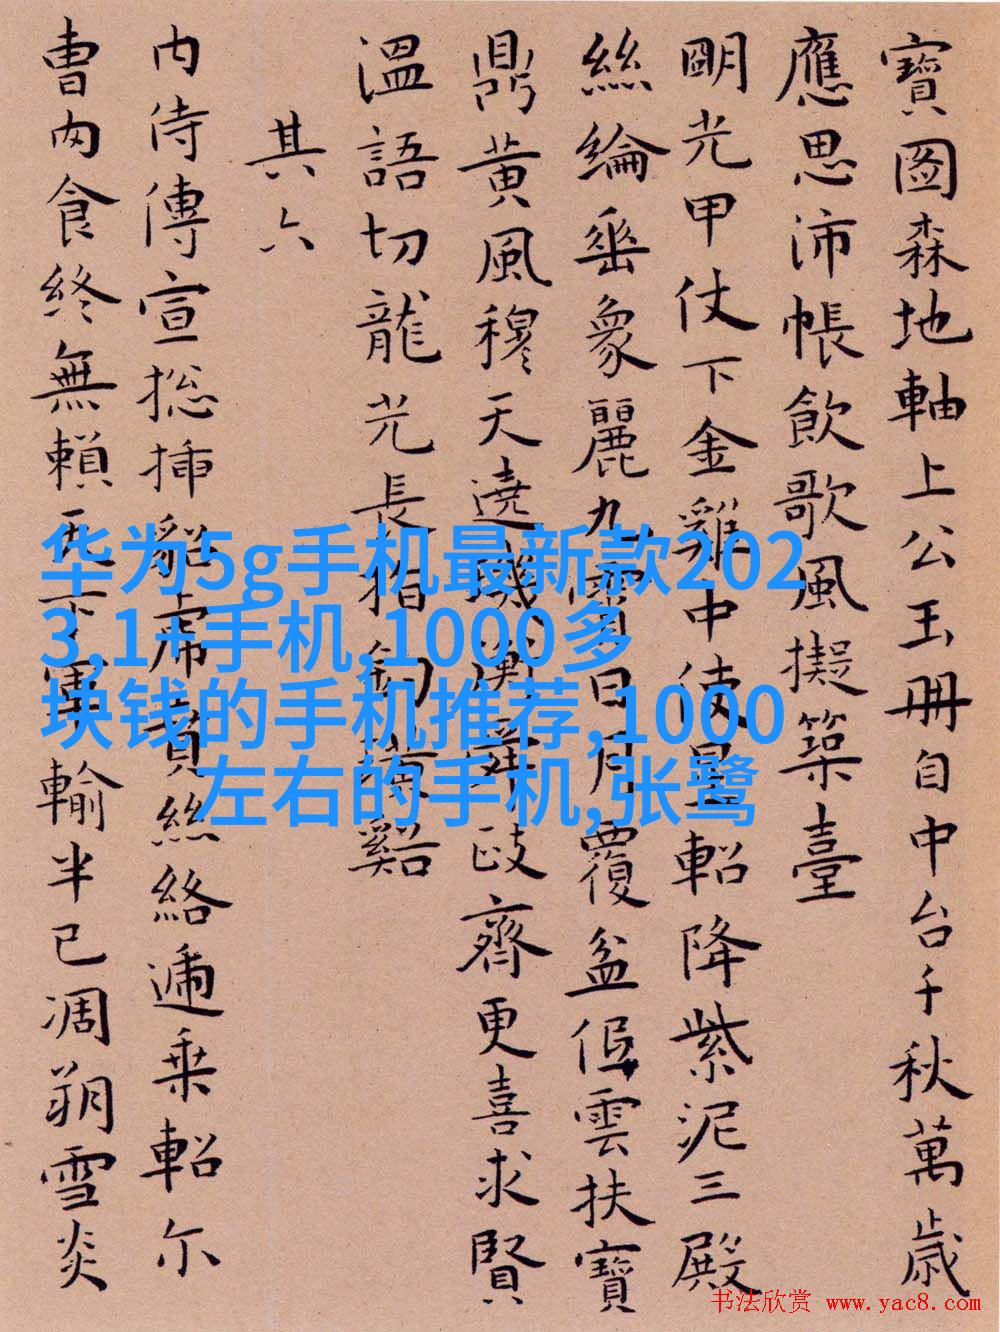 寶圖森地軸上公玉冊自中台千秋萬歲
應思沛帳飲歌風擬築臺
朙光甲仗下金雞中使星軺降紫泥三殿
絲綸垂象麗九霄日月覆盆仾雲扶寶
鼎黃風穆天遶璣衡齊更喜求賢
溫語切龍光長指釣璜谿
其六
内侍傳宣捴揷貂虎賁絲絡逓乗軺尓
曹肉食終無賴軍輸半已凋朔雪炎
华为5g手机最新款202
3,1+手机,1000多
块钱的手机推荐,1000
左右的手机,张鹭
书法欣赏 www.yac8.com